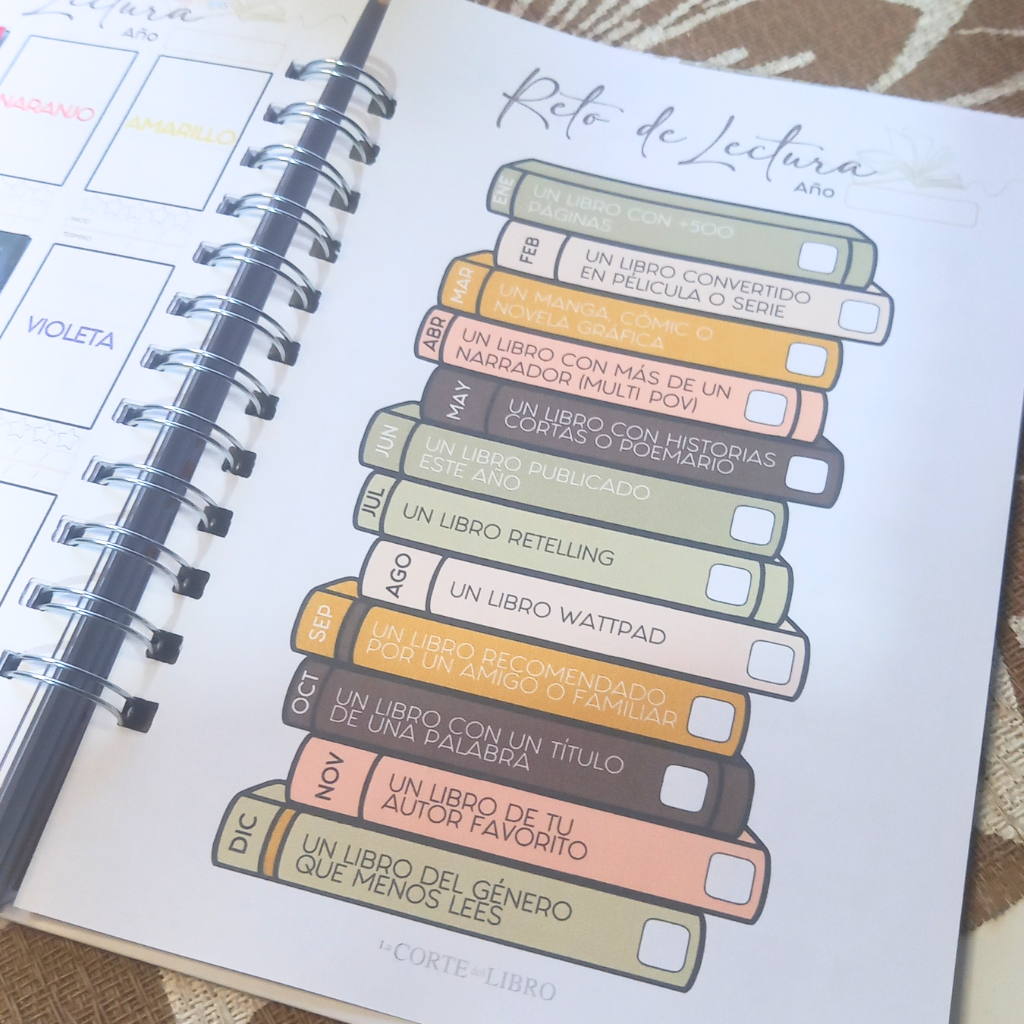 Lectura
AÑO
NARANJO
AMARILLO
VIOLETA
Reto de Lectura
AÑO
ENE
UN LIBRO CON +500
PÁGINAS
FEB
UN LIBRO CONVERTIDO
EN PÉLICULA O SERIE
MAR
UN MANGA, CÓMIC O
NOVELA GRÁFICA
ABR
UN LIBRO CON MÁS DE UN
NARRADOR (MULTI POV)
MAY
UN LIBRO CON HISTORIAS
CORTAS O POEMARIO
JUN
UN LIBRO PUBLICADO
ESTE AÑO
JUL
UN LIBRO RETELLING
AGO
UN LIBRO WATTPAD
SEP
UN LIBRO RECOMENDADO
POR UN AMIGO O FAMILIAR
OCT
UN LIBRO CON UN TÍTULO
DE UNA PALABRA
NOV
UN LIBRO DE TU
AUTOR FAVORITO
DIC
UN LIBRO DEL GÉNERO
QUE MENOS LEES
La CORTE del LIBRO